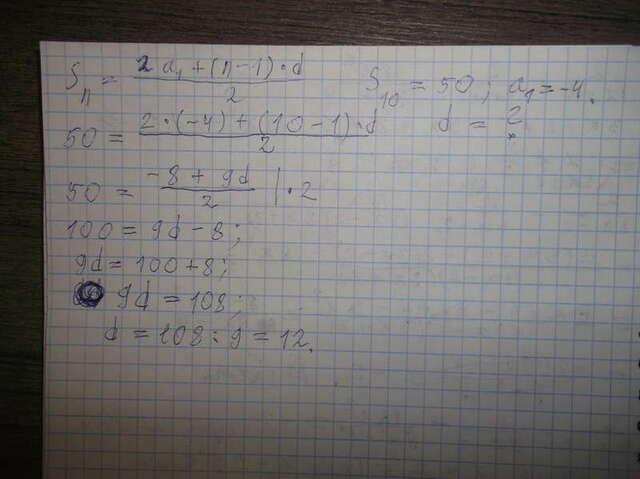 Sₙ = (2a₁ + (n-1)·d)/2 S₁₀ = 50; a₁ = -4.
50 = (2·(-4) + (10-1)·d)/2 d = ?
50 = (-8 + 9d)/2 |·2
100 = 9d - 8;
9d = 100 + 8;
9d = 108;
d = 108 : 9 = 12.